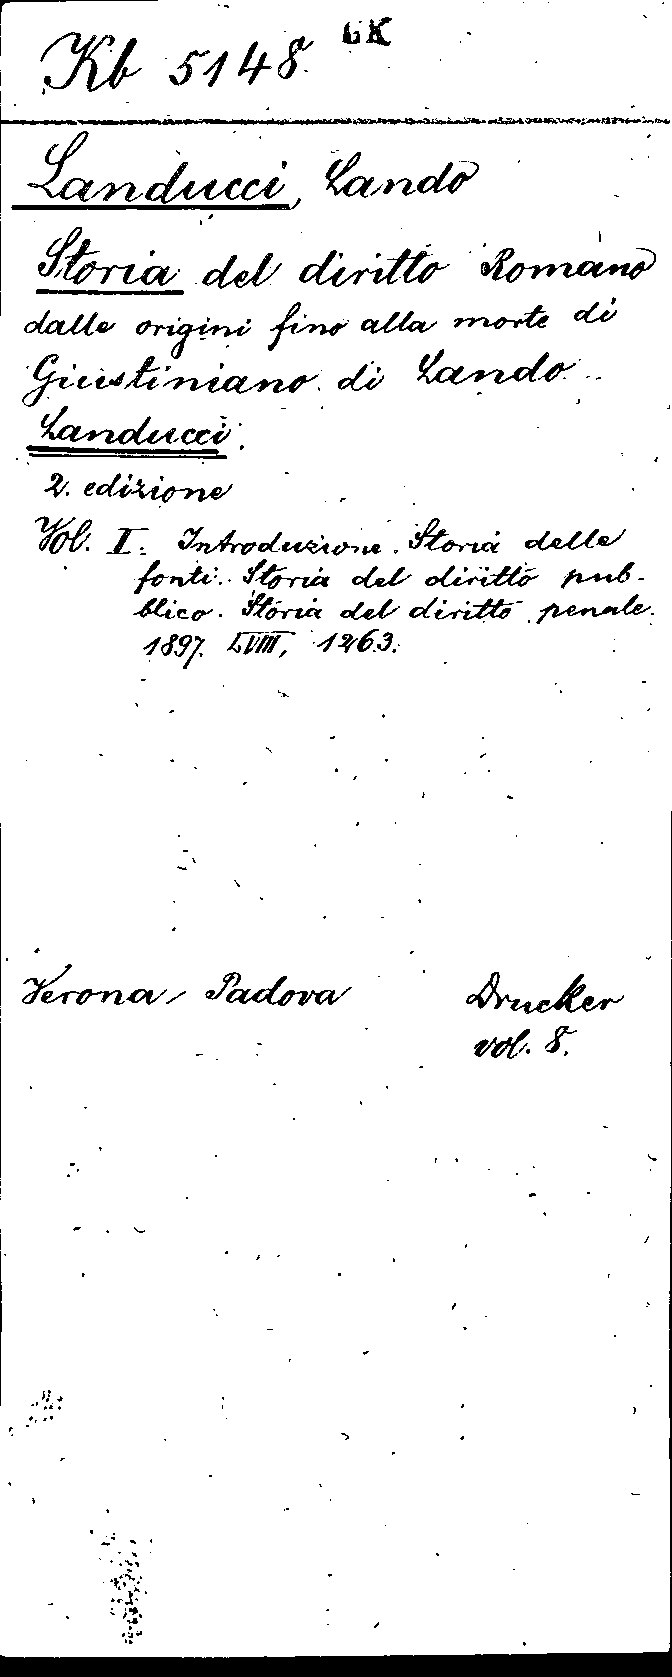 Kb 5148 GK
Landucci, Lando
Storia del diritto Romano
dalle origini fino alla morte di
Giustiniano di Lando
Landucci.
2. edizione
Vol. I. Introduzione. Storia delle
fonti. Storia del diritto pub-
blico. Storia del diritto penale.
1897. LVIII, 1263.
Verona, Padova Drucker
vol. 8.